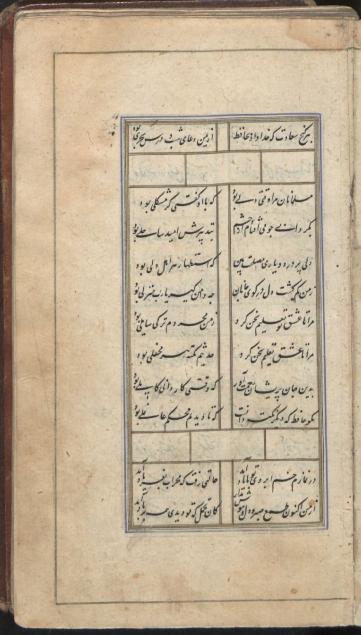 هر گنج سعادت که خدا داد به حافظ از یمن دعای شب و درس سحری بود
مسلمانان مرا وقتی دلی بود که با او گفتمی گر مشکلی بود
بگردابی چو می افتادم از غم بتدبیرش امید ساحلی بود
دلی پر درد و یاری مصلحت بین که استظهار هر اهل دلی بود
ز من گم گشت دل در کوی جانان چه دامن گیر یا رب منزلی بود
مرا تا عشق تو تعلیم سخن کرد ز من محروم تر کی سایلی بود
مرا تا عشق تعلیم سخن کرد حدیثم نکته هر محفلی بود
بدین جان پریشان رحمت آرید که وقتی کاردانی کاملی بود
مگو حافظ که دیگر نکته دانست که ما دیدیم محکم غافلی بود
در نمازم خم ابروی تو با یاد آمد حالتی رفت که محراب بفریاد آمد
از من اکنون طمع صبر و دل و هوش مدار کان تحمل که تو دیدی همه بر باد آمد